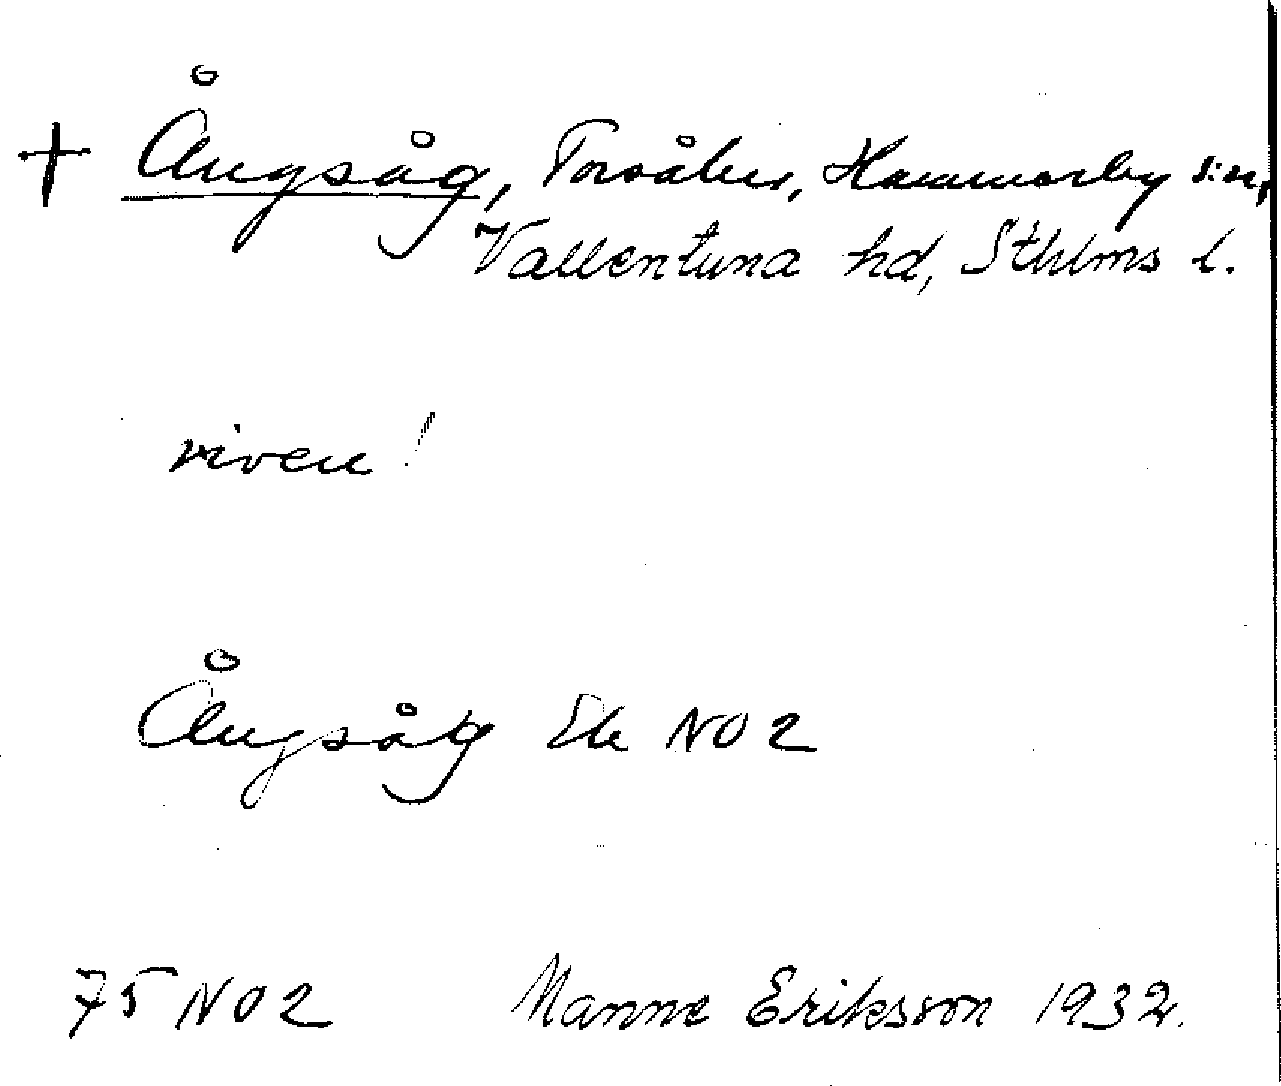 † Ångsåg, Torsåker, Hammarby s:n,
Vallentuna hd, Sthlms l.
riven!
Ångsåg Ek NO2
75 NO2 Manne Eriksson 1932.